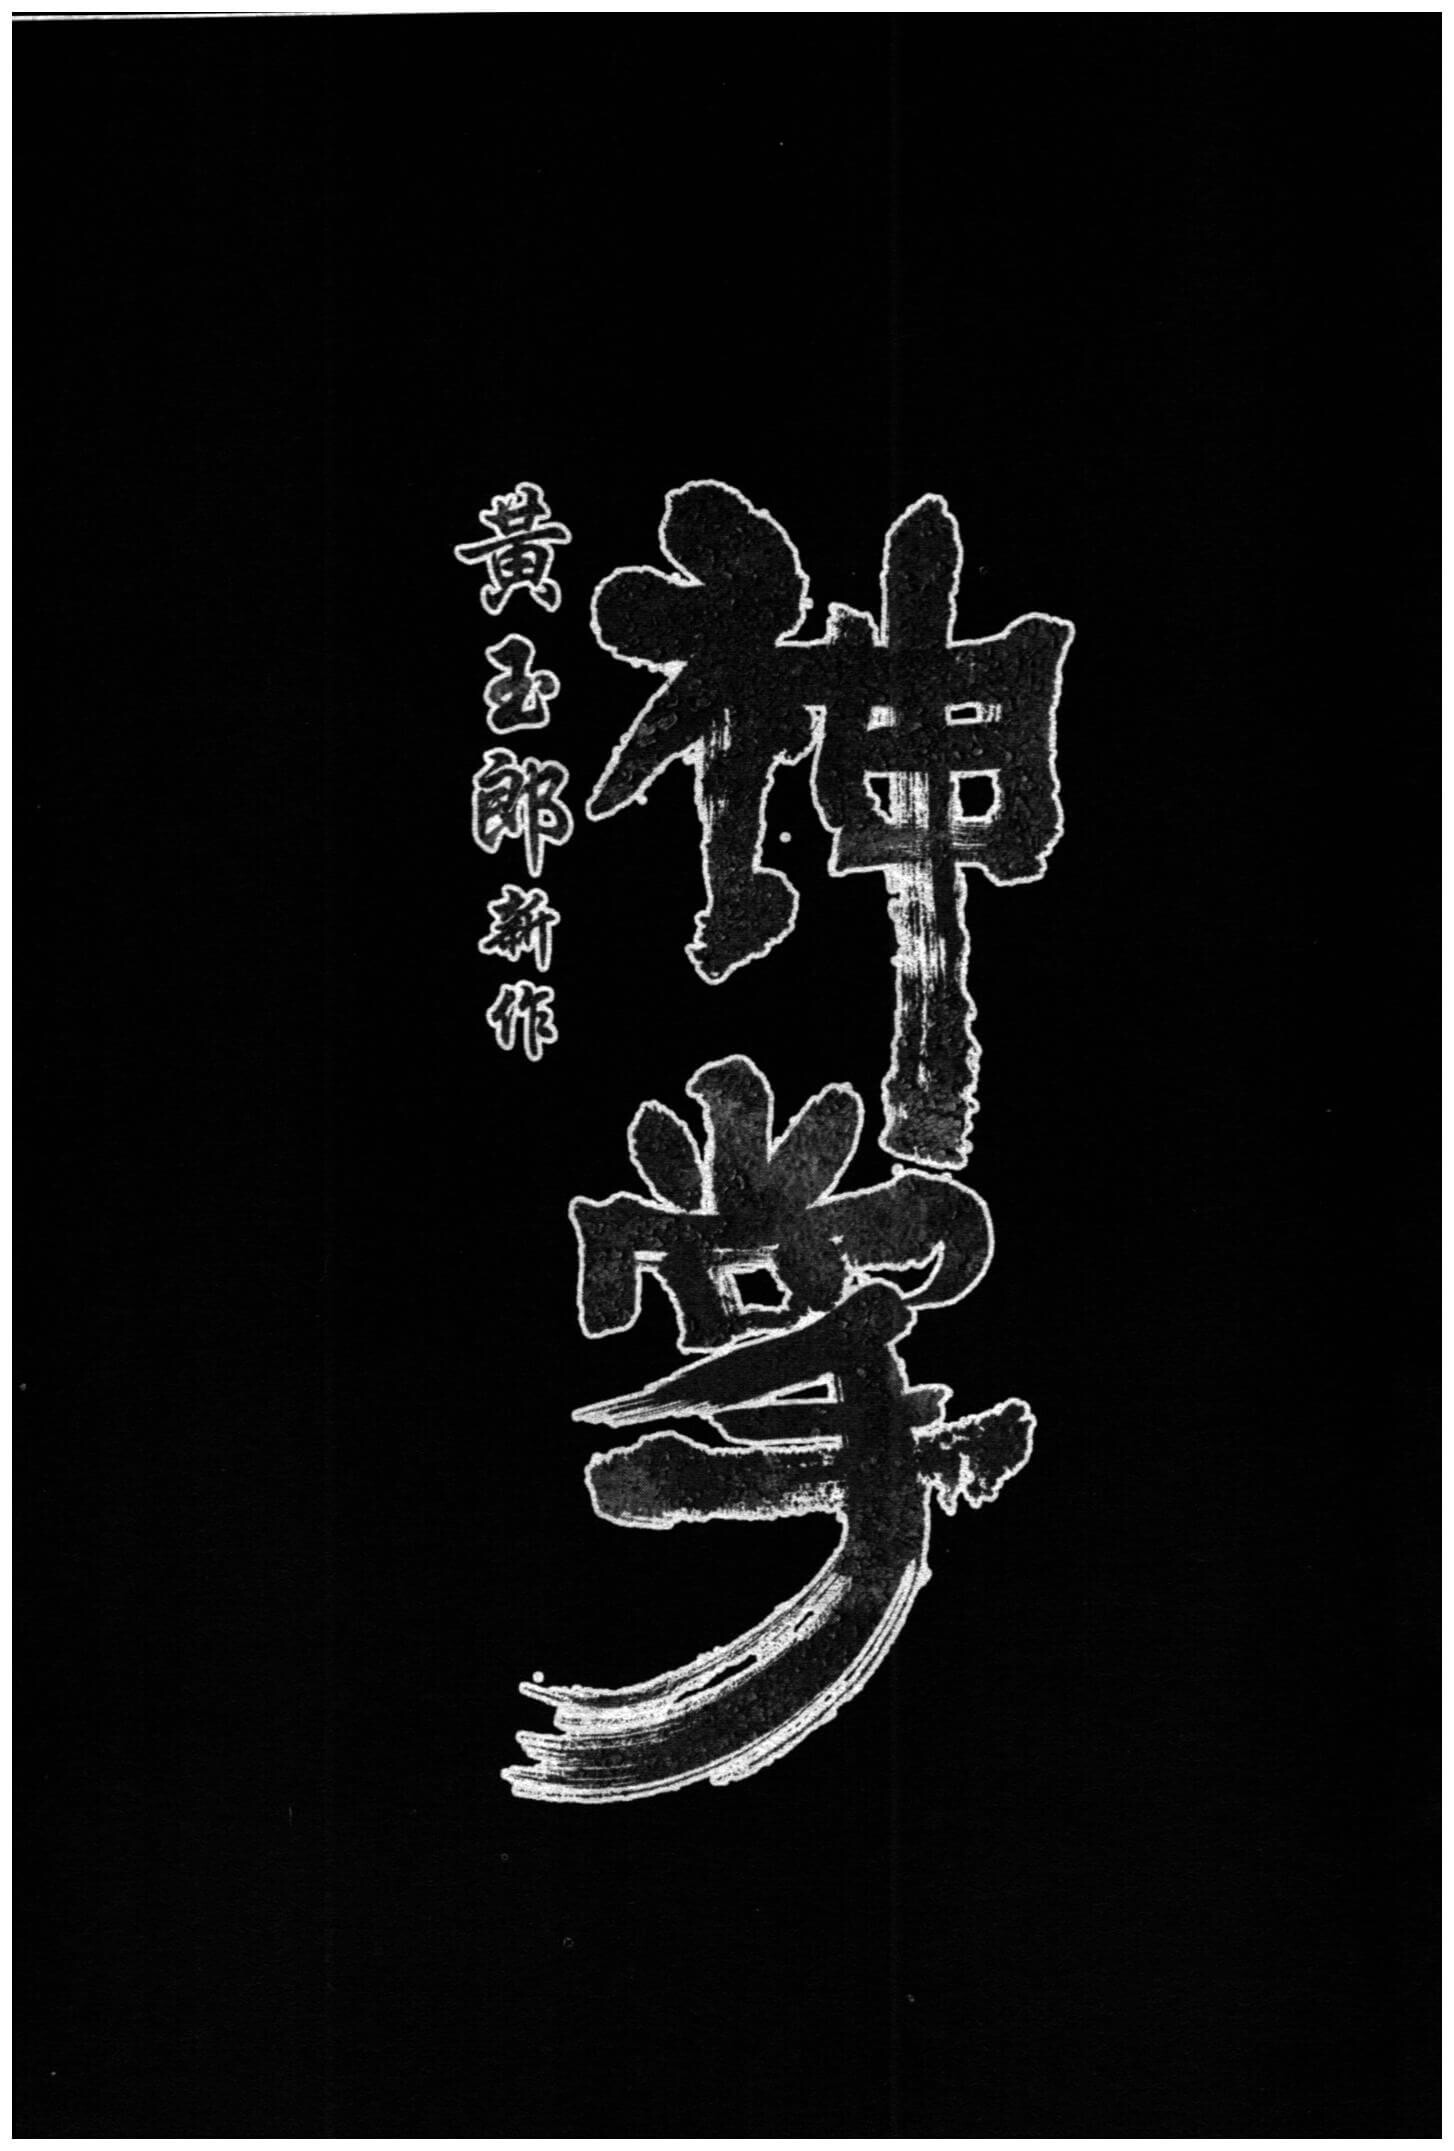 神掌
黃玉郎新作